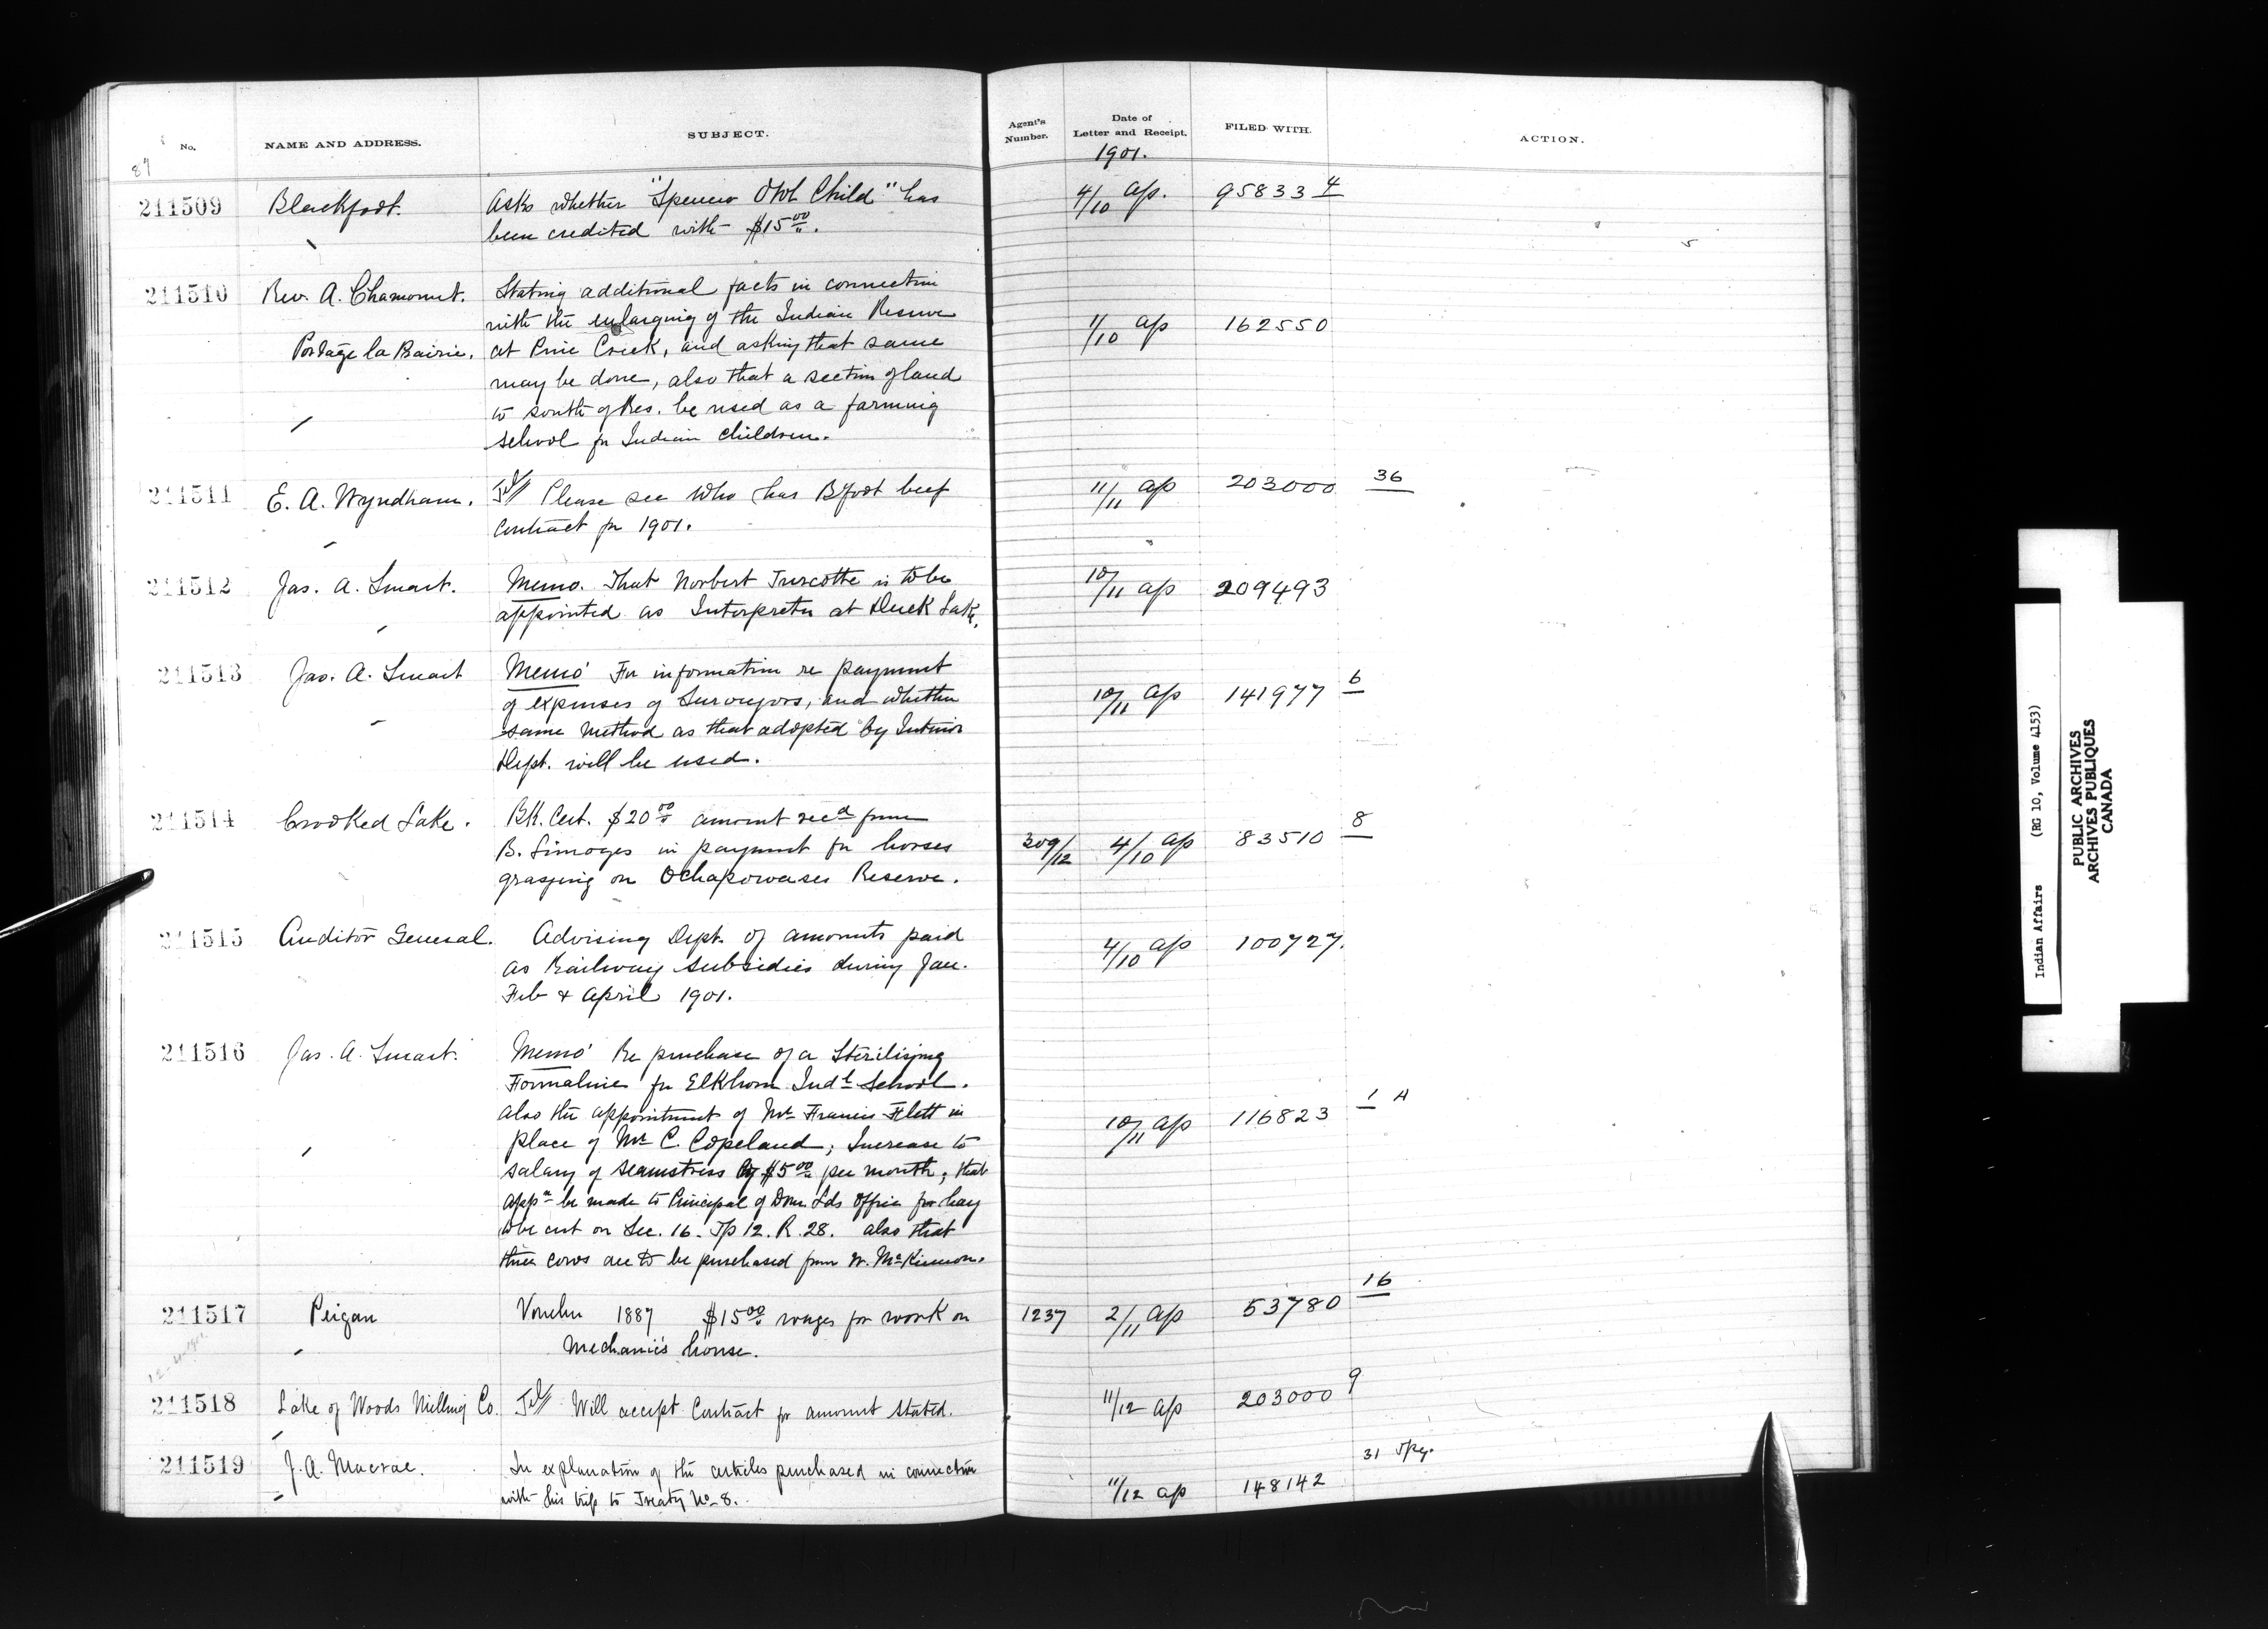 No.
NAME AND ADDRESS.
SUBJECT.
Agent's Number.
Date of Letter and Receipt.
FILED WITH.
ACTION.
87
1901.
211509 Blackfoot. Asks whether "Spencer Owl Child" has 4/10 ap. 95833 4
been credited with $15 00.
211510 Rev. A. Chamont. Stating additional facts in connection
with the enlarging of the Indian Reserve 1/10 ap 162550
Portage la Prairie. at Pine Creek, and asking that same
may be done, also that a section of land
to south of Res. be used as a farming
school for Indian children.
211511 E. A. Wyndham. Tel/ Please see who has Bfoot beef 11/11 ap 203000 36
contract for 1901.
211512 Jas. A. Smart. Memo. That Norbert Turcotte is to be 10/11 ap 209493
appointed as Interpreter at Duck Lake.
211513 Jas. A. Smart Memo For information re payment
of expenses of Surveyors, and whether 10/11 ap 141977 6
same method as that adopted by Interior
Dept. will be used.
211514 Crooked Lake. Bk. Cert. $20 00 amount recd from
B. Limoges in payment for horses 309/12 4/10 ap 83510 8
grazing on Ochapowaces Reserve.
211515 Auditor General. Advising Dept. of amounts paid 4/10 ap 100727.
as Railway subsidies during Jan.
Feb & April 1901.
211516 Jas. A. Smart. Memo Re purchase of a Sterilizing
Formaline for Elkhorn Indl School.
also the appointment of Mr Francis Flett in 10/11 ap 116823 1 A
place of Mr C. Copeland; Increase to
salary of seamstress by $5 00 per month; that
appn be made to Principal of Dom. Lds Office for hay
to be cut on Sec. 16. Tp 12. R. 28. also that
three cows are to be purchased from W. McKinnon.
211517 Peigan Voucher 1887 $15 00 wages for work on 1237 2/11 ap 53780 16
Mechanic's house.
211518 Lake of Woods Milling Co. Tel/ Will accept Contract for amount stated. 11/12 ap 203000 9
211519 J. A. Macrae. In explanation of the articles purchased in connection 11/12 ap 148142 31
with his trip to Treaty No 8.
Indian Affairs (RG 10, Volume 4153)
PUBLIC ARCHIVES
ARCHIVES PUBLIQUES
CANADA